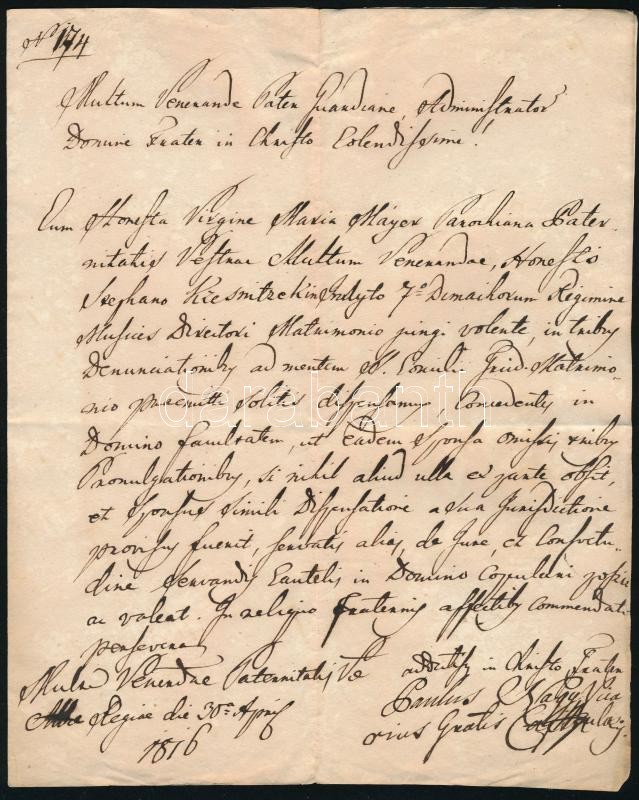 No 174
Multum Venerande Pater Guardiane, Administrator
Domine Frater in Christo Colendissime!
Cum Honesta Virgine Maria Mayer Parochiana Pater-
nitatis Vestrae Multum Venerandae, Honesto
Stephano inclyto 7o Regimine
Musices Directori Matrimonio jungi volente, in tribus
Denunciationibus ad mentem S. Concilii Trid. Matrimo-
nio praemitti solitis dispensamus, Concedentes in
Domino facultatem, ut eadem Sponsa omissis tribus
Promulgationibus, si nihil aliud ulla ex parte obsit,
et Sponsus simili Dispensatione a sua Jurisdictione
provisus fuerit, servatis alias, de Jure, et Consvetu-
dine servandis Cautelis in Domino Copulari possit
ac valeat. In reliquo fraternis affectibus commendatus
persevero
Multum Venerandae Paternitatis Vae
addictus in Christo Frater
Albae Regiae die 30a Aprilis
Paulus Nagy Vica
1816
rius Gralis Capitularis
darabanth